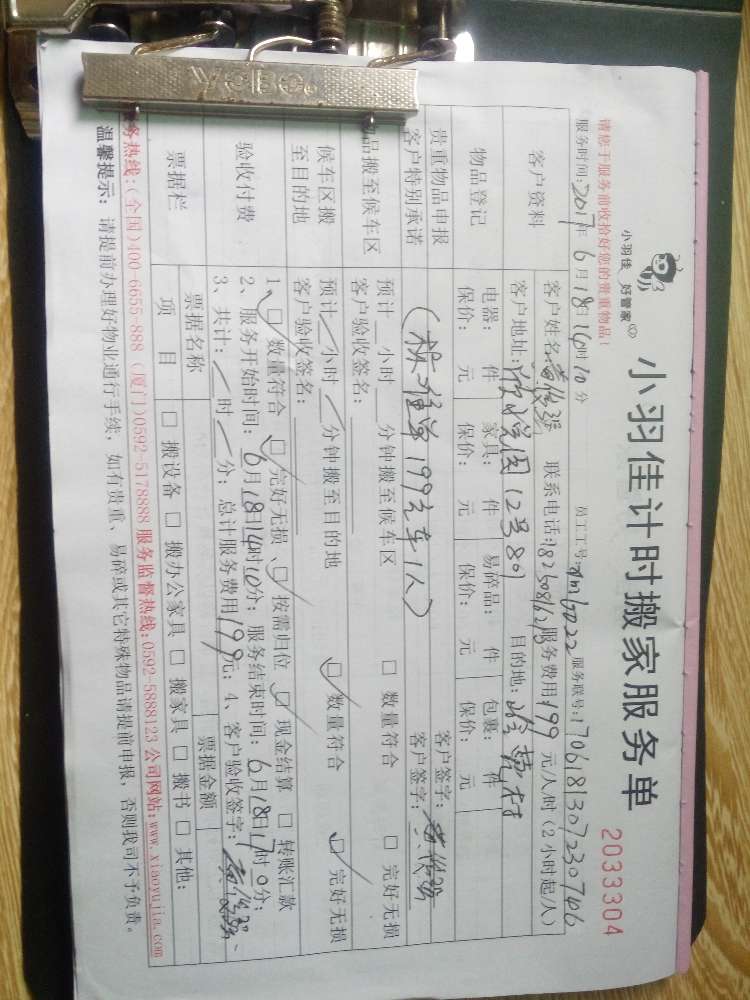 YOBO
小羽佳 好管家
小羽佳计时搬家服务单
2033304
请您于服务前收拾好您的贵重物品!
员工工号: 服务联号:170618130723074b
服务时间:2017年6月18日14时10分
客户资料
客户姓名: 联系电话: 服务费用199元/人/时(2小时起/人)
客户地址: 12号801 目的地:
物品登记
电器: 件 家具: 件 易碎品: 件 包裹: 件
保价: 元 保价: 元 保价: 元 保价: 元
贵重物品申报 客户签字:
客户特别承诺 ( 199元车1人) 客户签字:
物品搬至候车区
预计 小时 分钟搬至候车区 □ 数量符合 □ 完好无损
客户验收签名:
候车区搬至目的地
预计 小时 分钟搬至目的地 □ 数量符合 □ 完好无损
客户验收签名:
验收付费
1、□ 数量符合 □ 完好无损、□ 按需归位 □ 现金结算 □ 转账汇款
2、服务开始时间:6月18日14时10分;服务结束时间:6月18日17时0分;
3、共计: 时 分;总计服务费用199元;4、客户验收签字:
票据栏
票据名称 票据金额
项目 □ 搬设备 □ 搬办公家具 □ 搬家具 □ 搬书 □ 其他:
务热线:(全国)400-6655-888 (厦门)0592-5178888 服务监督热线:0592-5888123 公司网站:www.xiaoyujia.com
温馨提示:请提前办理好物业通行手续,如有贵重、易碎或其它特殊物品请提前申报,否则我司不予负责。